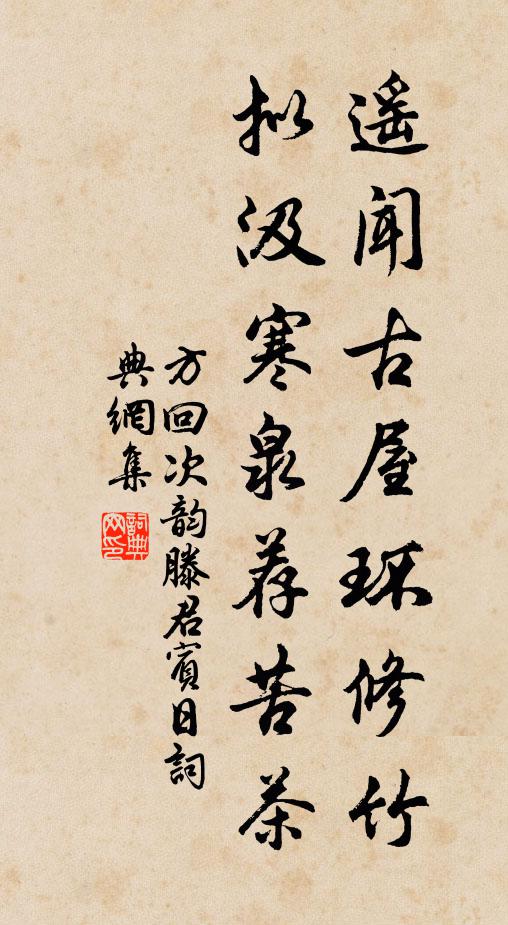 遥闻古屋环修竹
拟汲寒泉荐苦茶
方回次韵滕君宾日詞
典網集
詞典網印